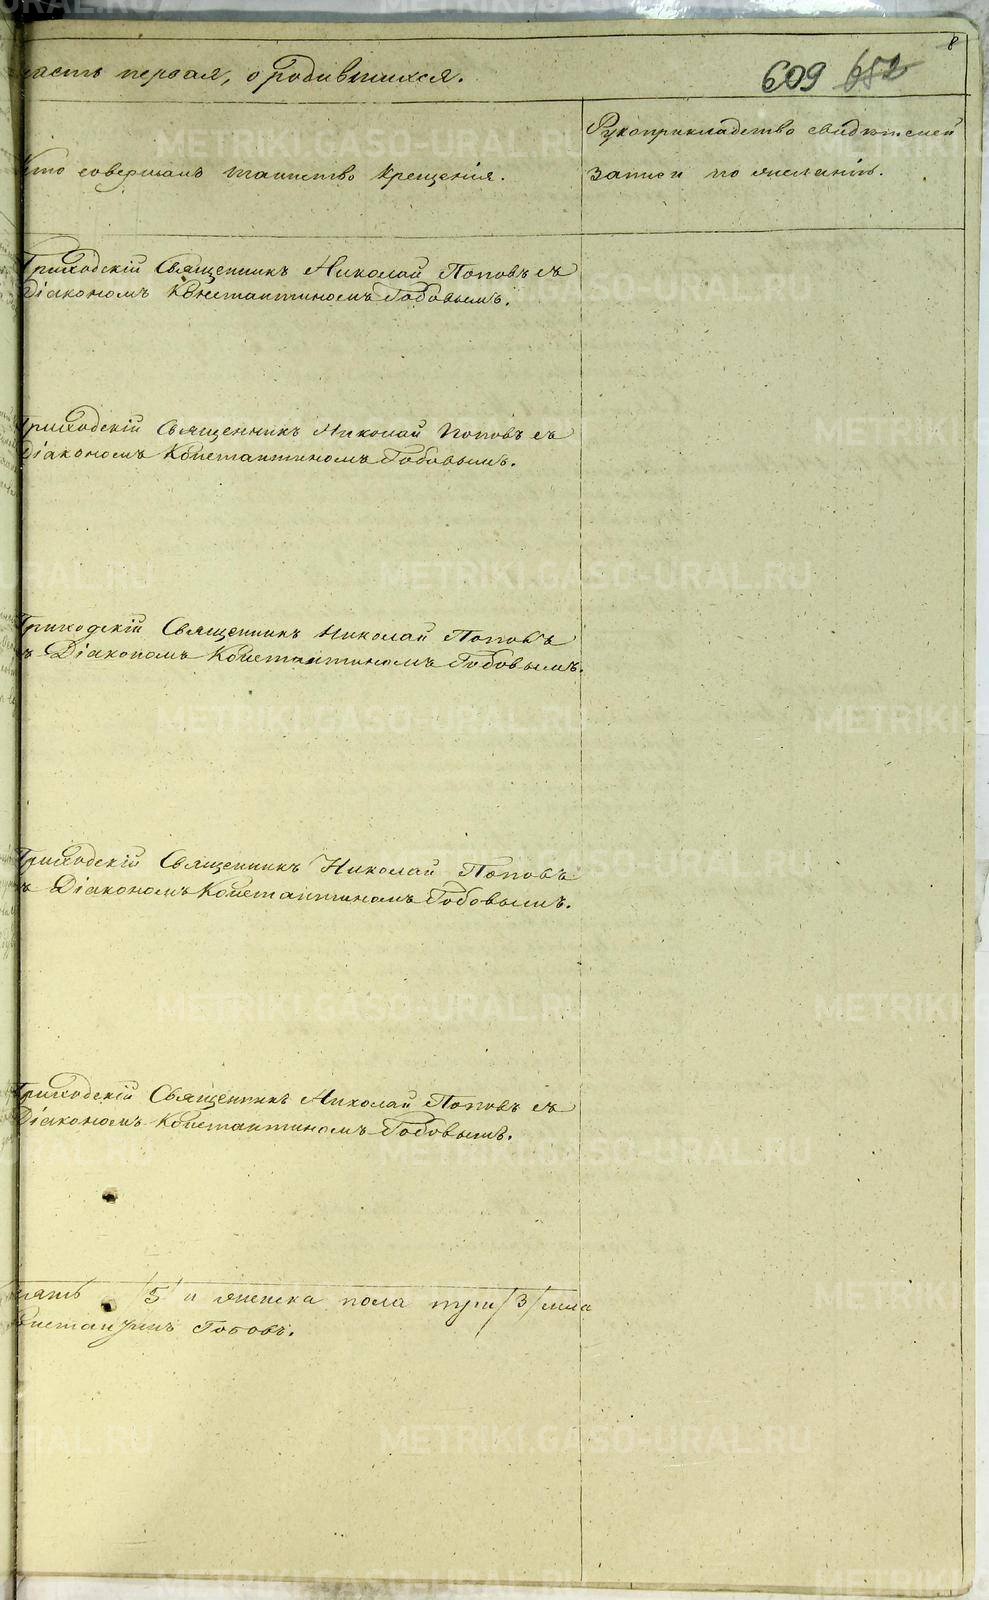 8
часть первая, о родившихся.
609 652
Кто совершалъ таинство крещенія.
Рукоприкладство свидѣтелей
записи по желанію.
Приходскій Священникъ Николай Поповъ съ
Діакономъ Константиномъ Гобовымъ.
Приходскій Священникъ Николай Поповъ съ
Діакономъ Константиномъ Гобовымъ.
Приходскій Священникъ Николай Поповъ
съ Діакономъ Константиномъ Гобовымъ.
Приходскій Священникъ Николай Поповъ
съ Діакономъ Константиномъ Гобовымъ.
Приходскій Священникъ Николай Поповъ съ
Діакономъ Константиномъ Гобовымъ.
пять /5/ и женска пола три /3/
Константинъ Гобовъ.
METRIKI.GASO-URAL.RU